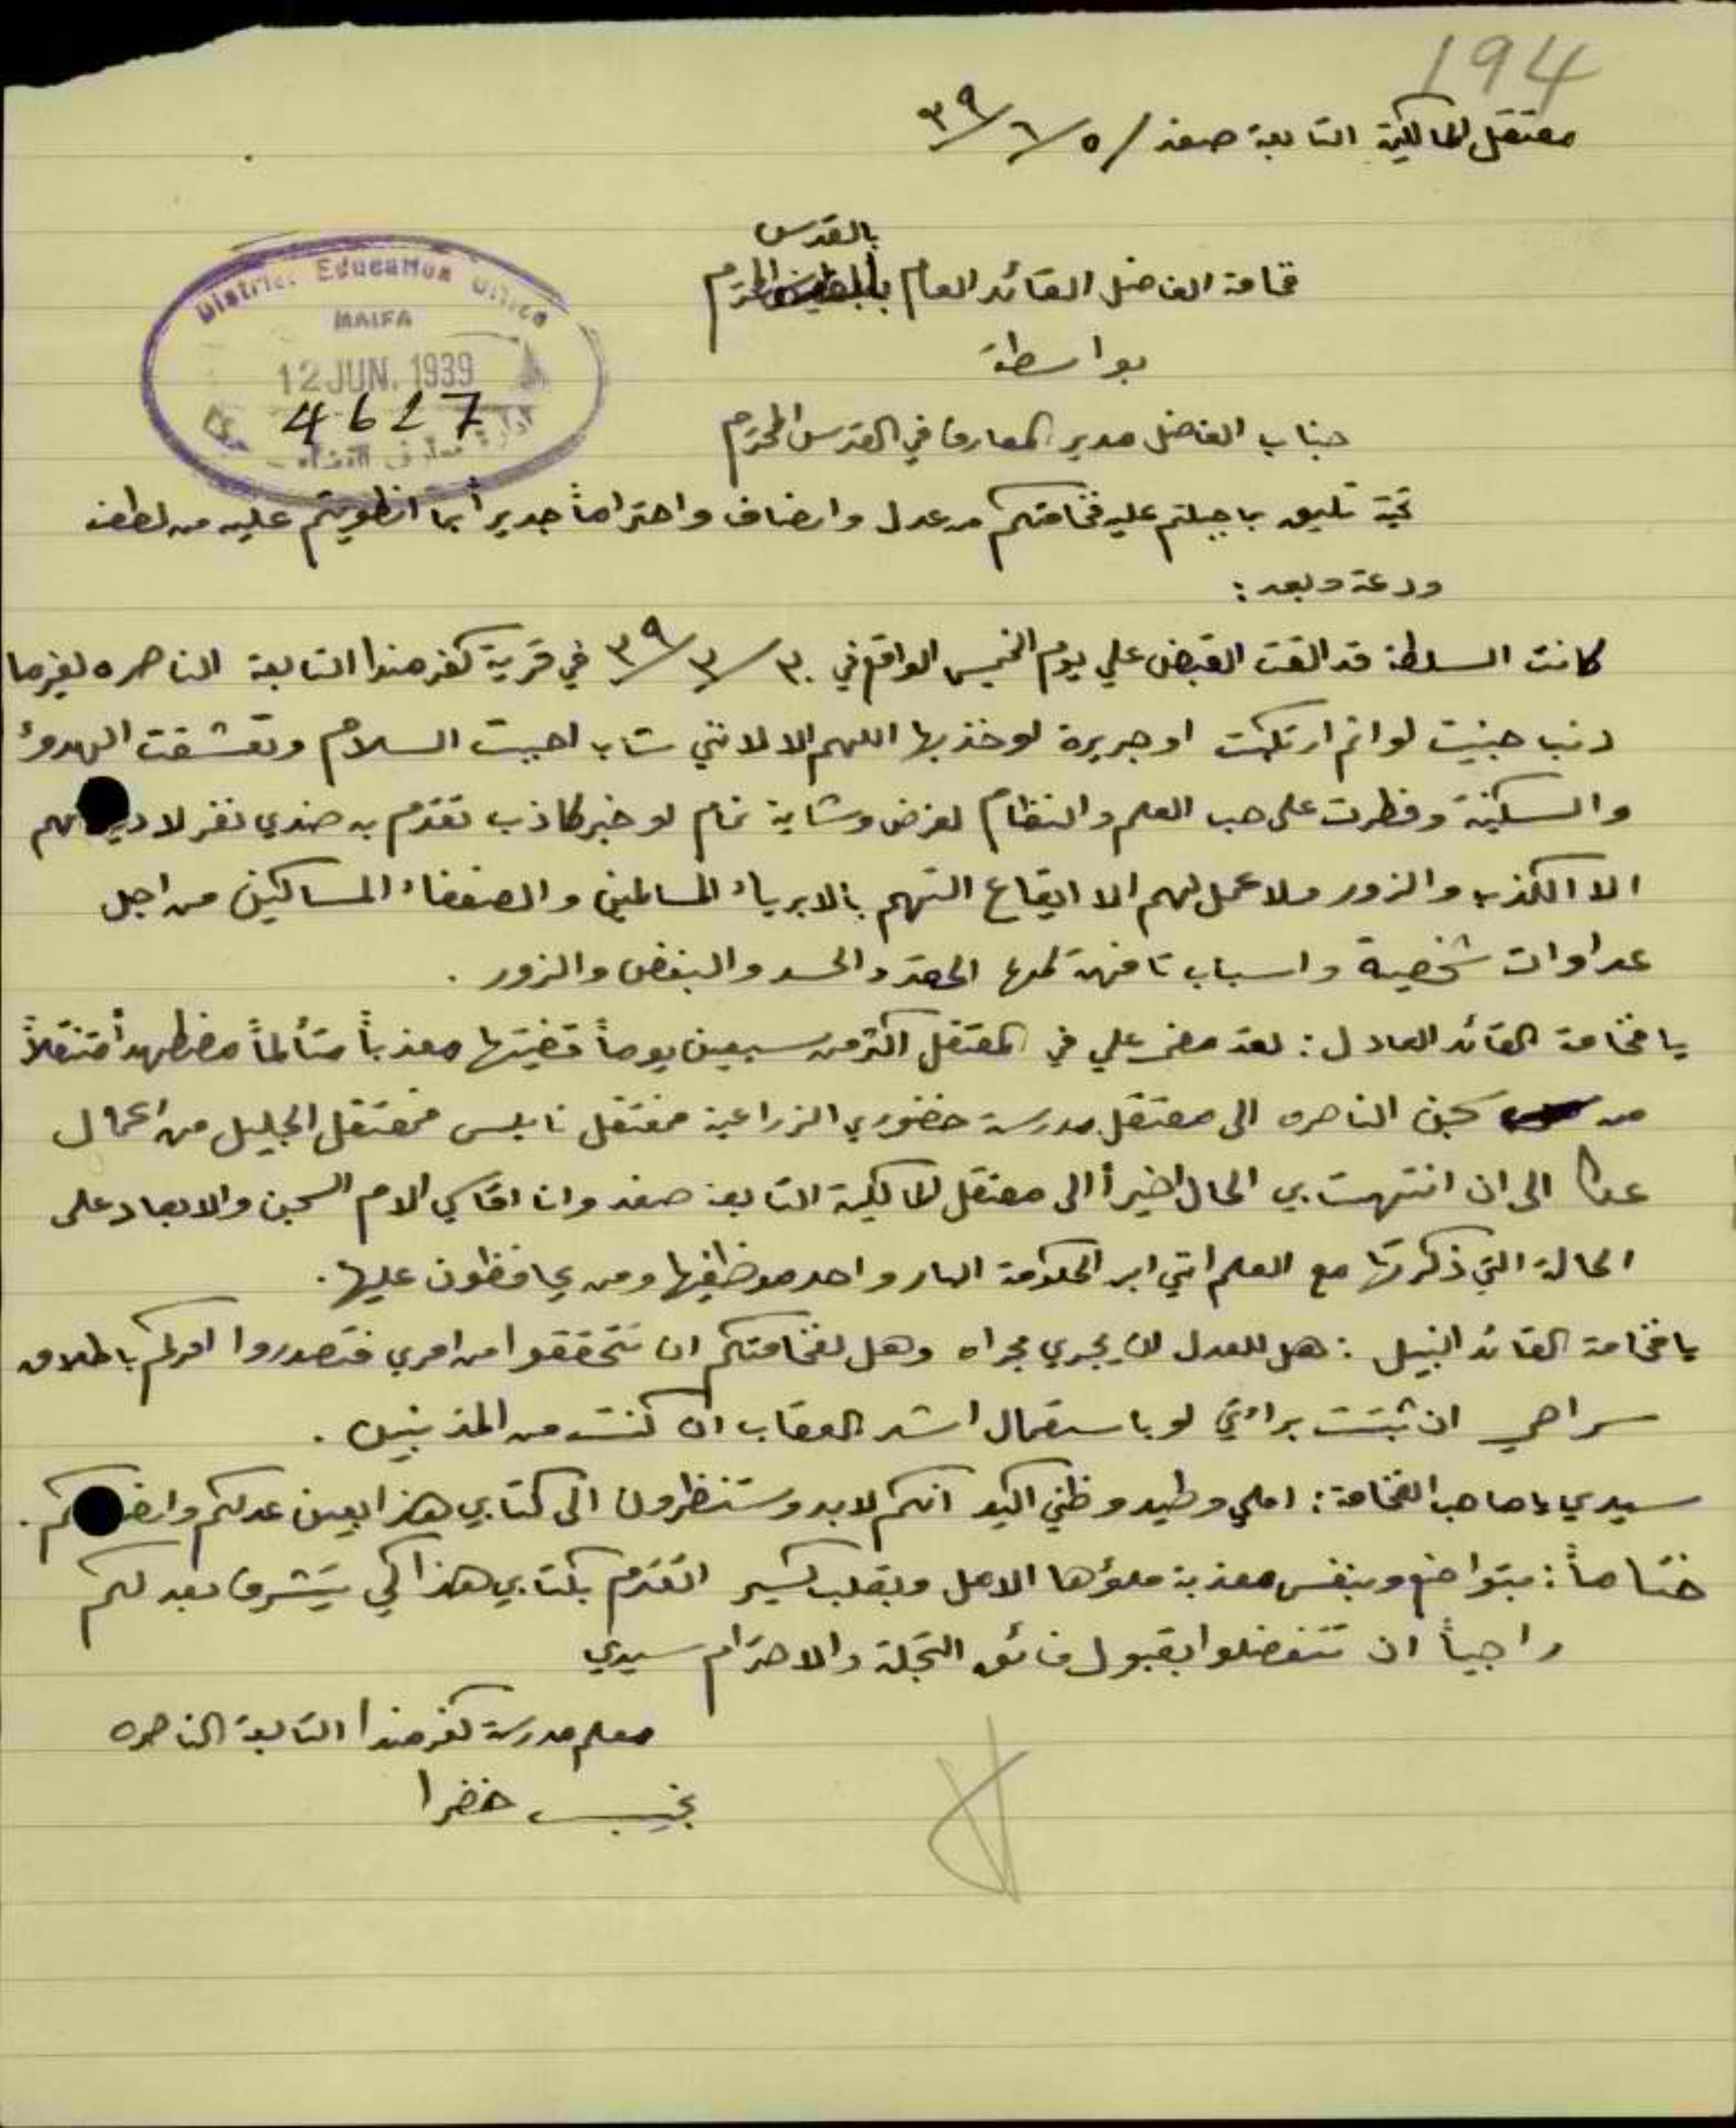 194
معتقل المالكية التابعة صفد / ٥/٦/٣٩
بالقدس
فخامة الفاضل القائد العام المحترم
District Education Office
HAIFA
12 JUN. 1939
4617
بواسطة
جناب الفاضل مدير المعارف في القدس المحترم
تحية تليق بما جبلتم عليه فخامتكم من عدل وانصاف واحتراماً جديراً بما انطويتم عليه من لطف
ودعة وبعد:
كانت السلطة قد القت القبض علي يوم الخميس الواقع في ٣٠/٣/٣٩ في قرية كفر مندا التابعة الناصره لغير ما
ذنب جنيت او اثم ارتكبت او جريرة اوخذ بها اللهم الا لانني شاب احببت السلام وتعشقت الهدوء
والسكينة وفطرت على حب العلم والنظام لغرض وشاية نمام او خبر كاذب تقدم به ضدي نفر لا دين لهم
الا الكذب والزور ولا عمل لهم الا ايقاع التهم بالابرياء المسالمين والضعفاء المساكين من اجل
عداوات شخصية واسباب تافهة كلها الحقد والحسد والبغض والزور .
يا فخامة القائد العادل : لقد مضى علي في المعتقل اكثر من سبعين يوماً قضيتها معذباً متألماً مضطهداً متنقلاً
من سجن الناصره الى معتقل مدرسة خضوري الزراعية فمعتقل نابلس فمعتقل الجليل من اعمال
عكا الى ان انتهت بي الحال اخيراً الى معتقل المالكية التابعة صفد وانا اقاسي الام السجن والابعاد على
الحالة التي ذكرتها مع العلم انني ابن الحكومة البار واحد موظفيها ومن يحافظون عليها .
يا فخامة القائد النبيل : هل للعدل ان يجري مجراه وهل لفخامتكم ان تتحققوا من امري فتصدروا امركم باطلاق
سراحي ان ثبتت براءتي او باستعمال اشد العقاب ان كنت من المذنبين .
سيدي يا صاحب الفخامة : املي وطيد وظني اكيد انكم لابد وستنظرون الى كتابي هذا بعين عدلكم وانصافكم .
ختاماً : بتواضع وبنفس معذبة ملؤها الامل وبقلب كسير اتقدم بكتابي هذا كي يتشرف بعدلكم
راجياً ان تتفضلوا بقبول فائق التجلة والاحترام سيدي
معلم مدرسة كفر مندا التابعة الناصره
نجيب خضرا